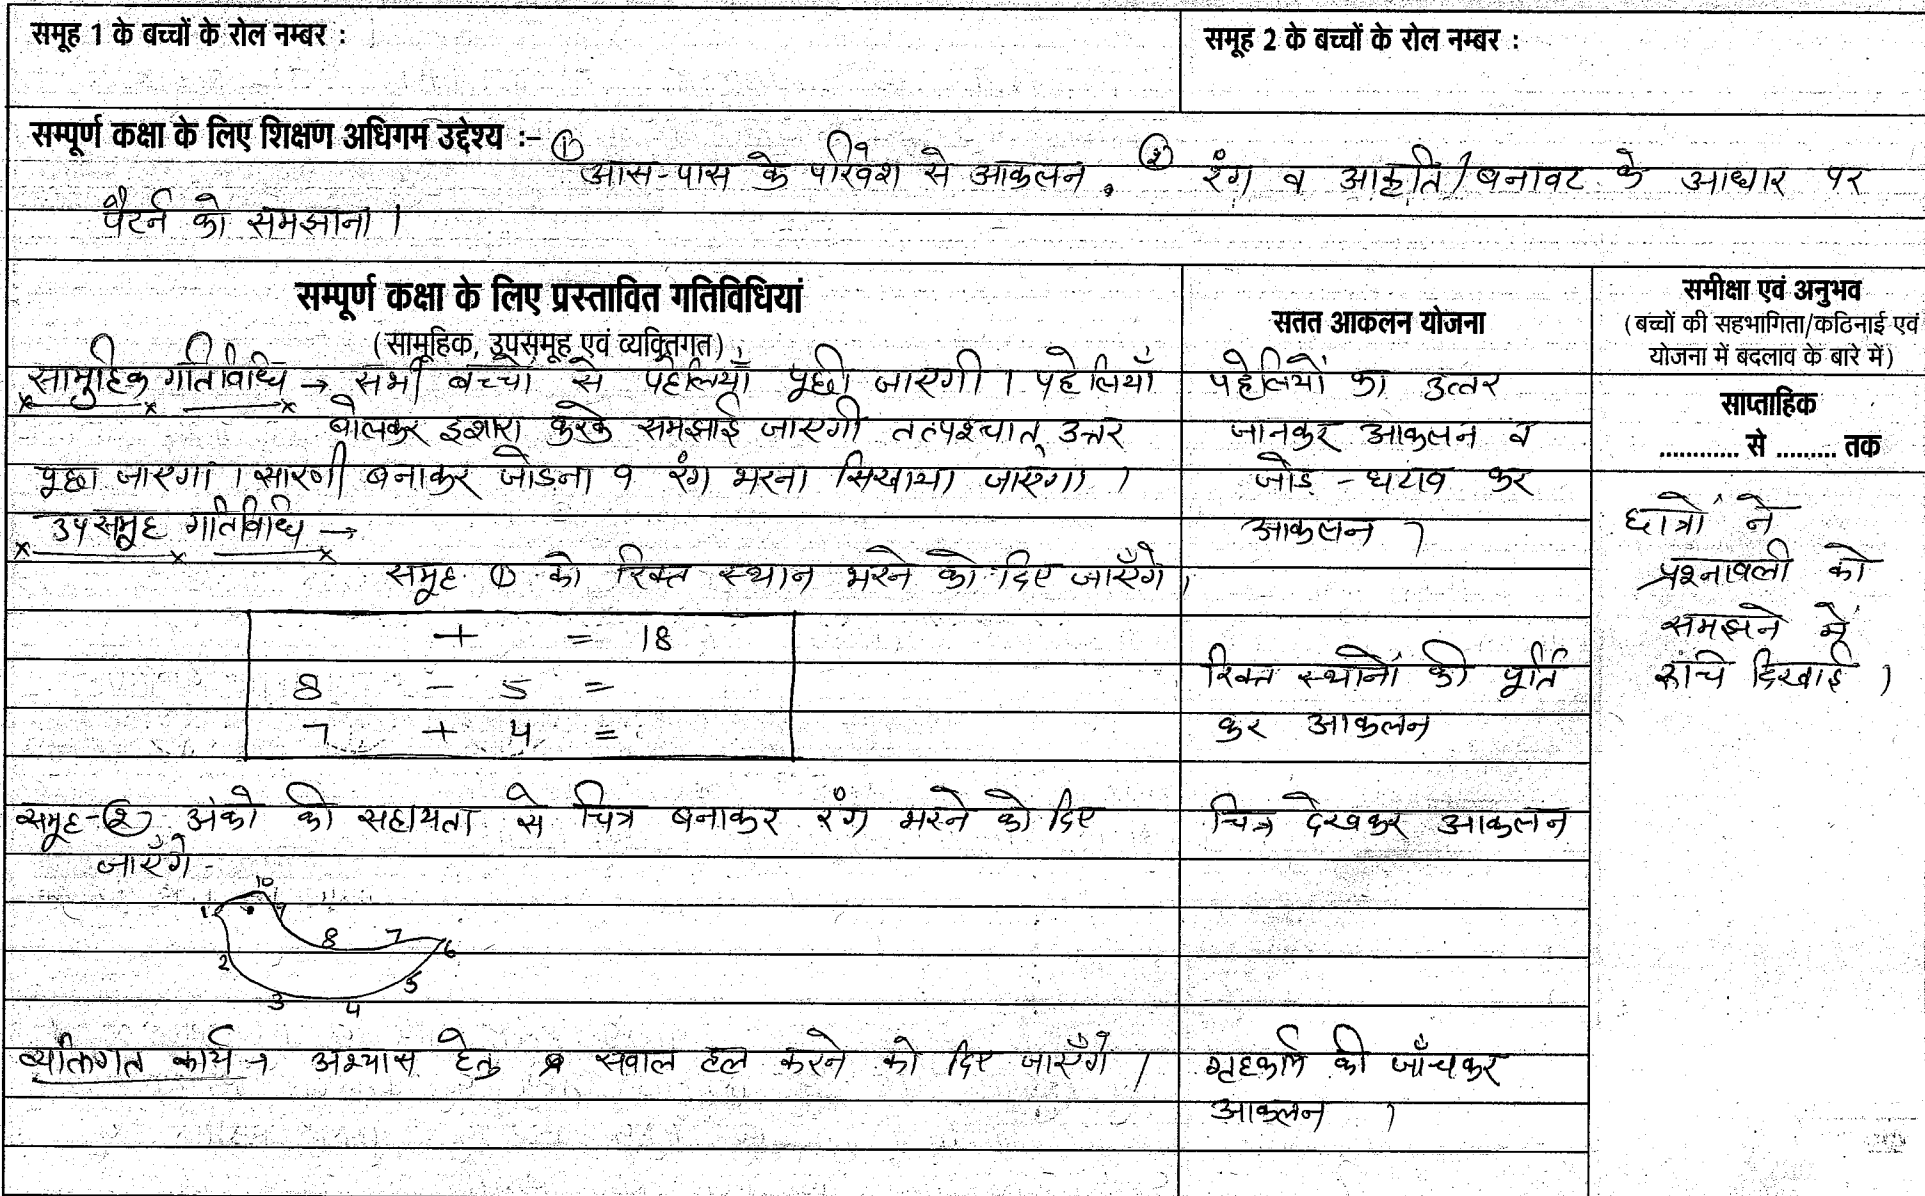 समूह 1 के बच्चों के रोल नम्बर :
समूह 2 के बच्चों के रोल नम्बर :
सम्पूर्ण कक्षा के लिए शिक्षण अधिगम उद्देश्य :- ① आस-पास के परिवेश से आकलन, ② रंग व आकृति/बनावट के आधार पर
पैटर्न को समझाना।
सम्पूर्ण कक्षा के लिए प्रस्तावित गतिविधियां
(सामूहिक, उपसमूह एवं व्यक्तिगत)
सामुहिक गतिविधि → सभी बच्चों से पहेलियाँ पूछी जाएगी। पहेलियाँ
बोलकर इशारा करके समझाई जाएगी तत्पश्चात् उत्तर
पूछा जाएगा। सारणी बनाकर जोडना व रंग भरना सिखाया जाएगा।
उपसमूह गतिविधि →
समूह ① को रिक्त स्थान भरने को दिए जाएँगे।
+ = 18
8 - 5 =
7 + 4 =
समूह-② अंको की सहायता से चित्र बनाकर रंग भरने को दिए
जाएँगे -
10
1 9
8 7 6
2 5
3 4
व्यक्तिगत कार्य → अभ्यास हेतु सवाल हल करने को दिए जाएँगे।
सतत आकलन योजना
पहेलियों का उत्तर
जानकर आकलन व
जोड़ - घटाव कर
आकलन।
रिक्त स्थानों की पूर्ति
कर आकलन
चित्र देखकर आकलन
गृहकार्य की जाँचकर
आकलन।
समीक्षा एवं अनुभव
(बच्चों की सहभागिता/कठिनाई एवं
योजना में बदलाव के बारे में)
साप्ताहिक
............ से ......... तक
छात्रों ने
प्रश्नावली को
समझने में
रूचि दिखाई।